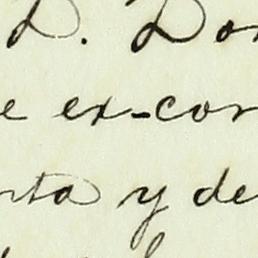 D. Don
e ex-cor
nta y de